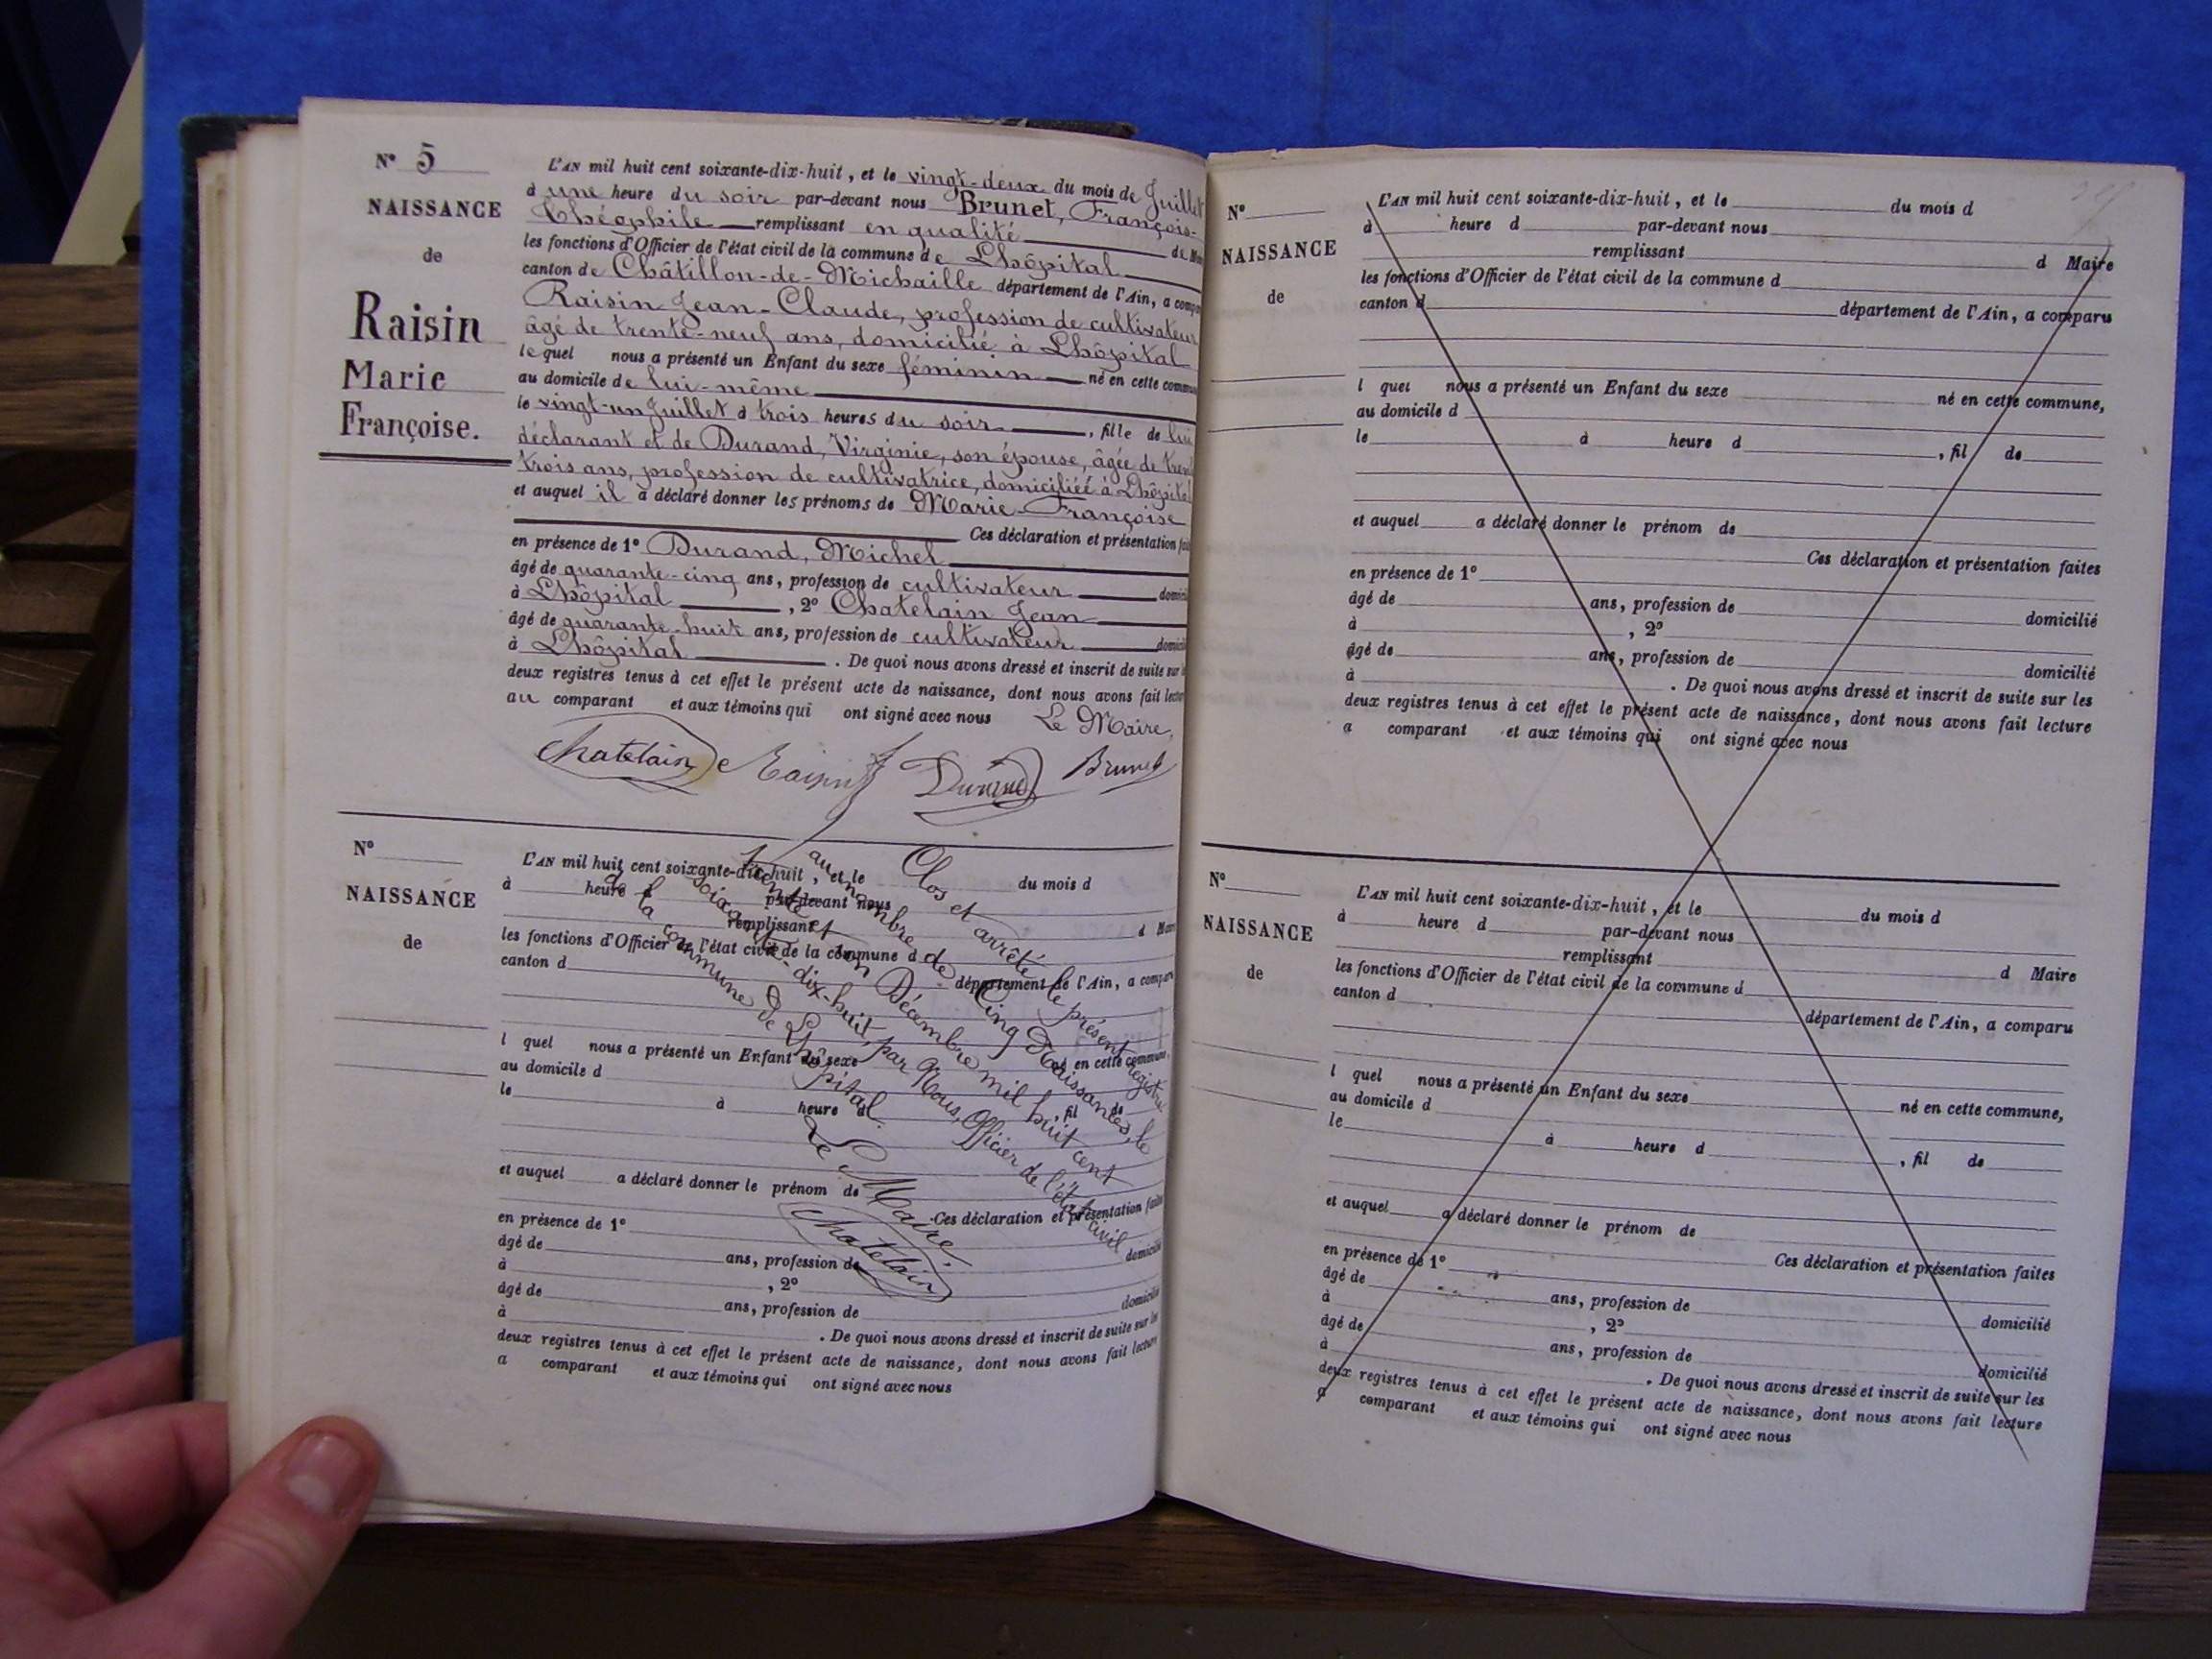 N° 5
NAISSANCE
de
Raisin
Marie
Françoise.
L'AN mil huit cent soixante-dix-huit, et le vingt-deux du mois de Juillet
à une heure du soir par-devant nous Brunet, François-
Théophile remplissant en qualité de Maire
les fonctions d'Officier de l'état civil de la commune de Lhôpital
canton de Châtillon-de-Michaille département de l'Ain, a comparu
Raisin Jean-Claude, profession de cultivateur
âgé de trente-neuf ans, domicilié à Lhôpital
lequel nous a présenté un Enfant du sexe féminin né en cette commune
au domicile de lui-même
le vingt-un Juillet à trois heures du soir, fille de lui
déclarant et de Durand, Virginie, son épouse, âgée de trente
trois ans, profession de cultivatrice, domiciliée à Lhôpital
et auquel il a déclaré donner les prénoms de Marie-Françoise
Ces déclaration et présentation faites
en présence de 1° Durand, Michel
âgé de quarante-cinq ans, profession de cultivateur domicilié
à Lhôpital, 2° Chatelain Jean
âgé de quarante-huit ans, profession de cultivateur domicilié
à Lhôpital. De quoi nous avons dressé et inscrit de suite sur les
deux registres tenus à cet effet le présent acte de naissance, dont nous avons fait lecture
au comparant et aux témoins qui ont signé avec nous Le Maire,
Chatelain Raisin J Durand Brunet
N°
NAISSANCE
de
L'AN mil huit cent soixante-dix-huit, et le du mois d
à heure d par-devant nous
remplissant d Maire
les fonctions d'Officier de l'état civil de la commune d
canton d département de l'Ain, a comparu
l quel nous a présenté un Enfant du sexe né en cette commune,
au domicile d
le à heure d , fil de
et auquel a déclaré donner le prénom de
Ces déclaration et présentation faites
en présence de 1°
âgé de ans, profession de domicilié
à , 2°
âgé de ans, profession de domicilié
à . De quoi nous avons dressé et inscrit de suite sur les
deux registres tenus à cet effet le présent acte de naissance, dont nous avons fait lecture
a comparant et aux témoins qui ont signé avec nous
Clos et arrêté le présent registre
au nombre de Cinq Naissances, le
trente et un Décembre mil huit cent
soixante-dix-huit, par Nous, Officier de l'état civil
de la commune de Lhôpital.
Le Maire.
Chatelain
N°
NAISSANCE
de
L'AN mil huit cent soixante-dix-huit, et le du mois d
à heure d par-devant nous
remplissant d Maire
les fonctions d'Officier de l'état civil de la commune d
canton d département de l'Ain, a comparu
l quel nous a présenté un Enfant du sexe né en cette commune,
au domicile d
le à heure d , fil de
et auquel a déclaré donner le prénom de
Ces déclaration et présentation faites
en présence de 1°
âgé de ans, profession de domicilié
à , 2°
âgé de ans, profession de domicilié
à . De quoi nous avons dressé et inscrit de suite sur les
deux registres tenus à cet effet le présent acte de naissance, dont nous avons fait lecture
a comparant et aux témoins qui ont signé avec nous
N°
NAISSANCE
de
L'AN mil huit cent soixante-dix-huit, et le du mois d
à heure d par-devant nous
remplissant d Maire
les fonctions d'Officier de l'état civil de la commune d
canton d département de l'Ain, a comparu
l quel nous a présenté un Enfant du sexe né en cette commune,
au domicile d
le à heure d , fil de
et auquel a déclaré donner le prénom de
Ces déclaration et présentation faites
en présence de 1°
âgé de ans, profession de domicilié
à , 2°
âgé de ans, profession de domicilié
à . De quoi nous avons dressé et inscrit de suite sur les
deux registres tenus à cet effet le présent acte de naissance, dont nous avons fait lecture
a comparant et aux témoins qui ont signé avec nous